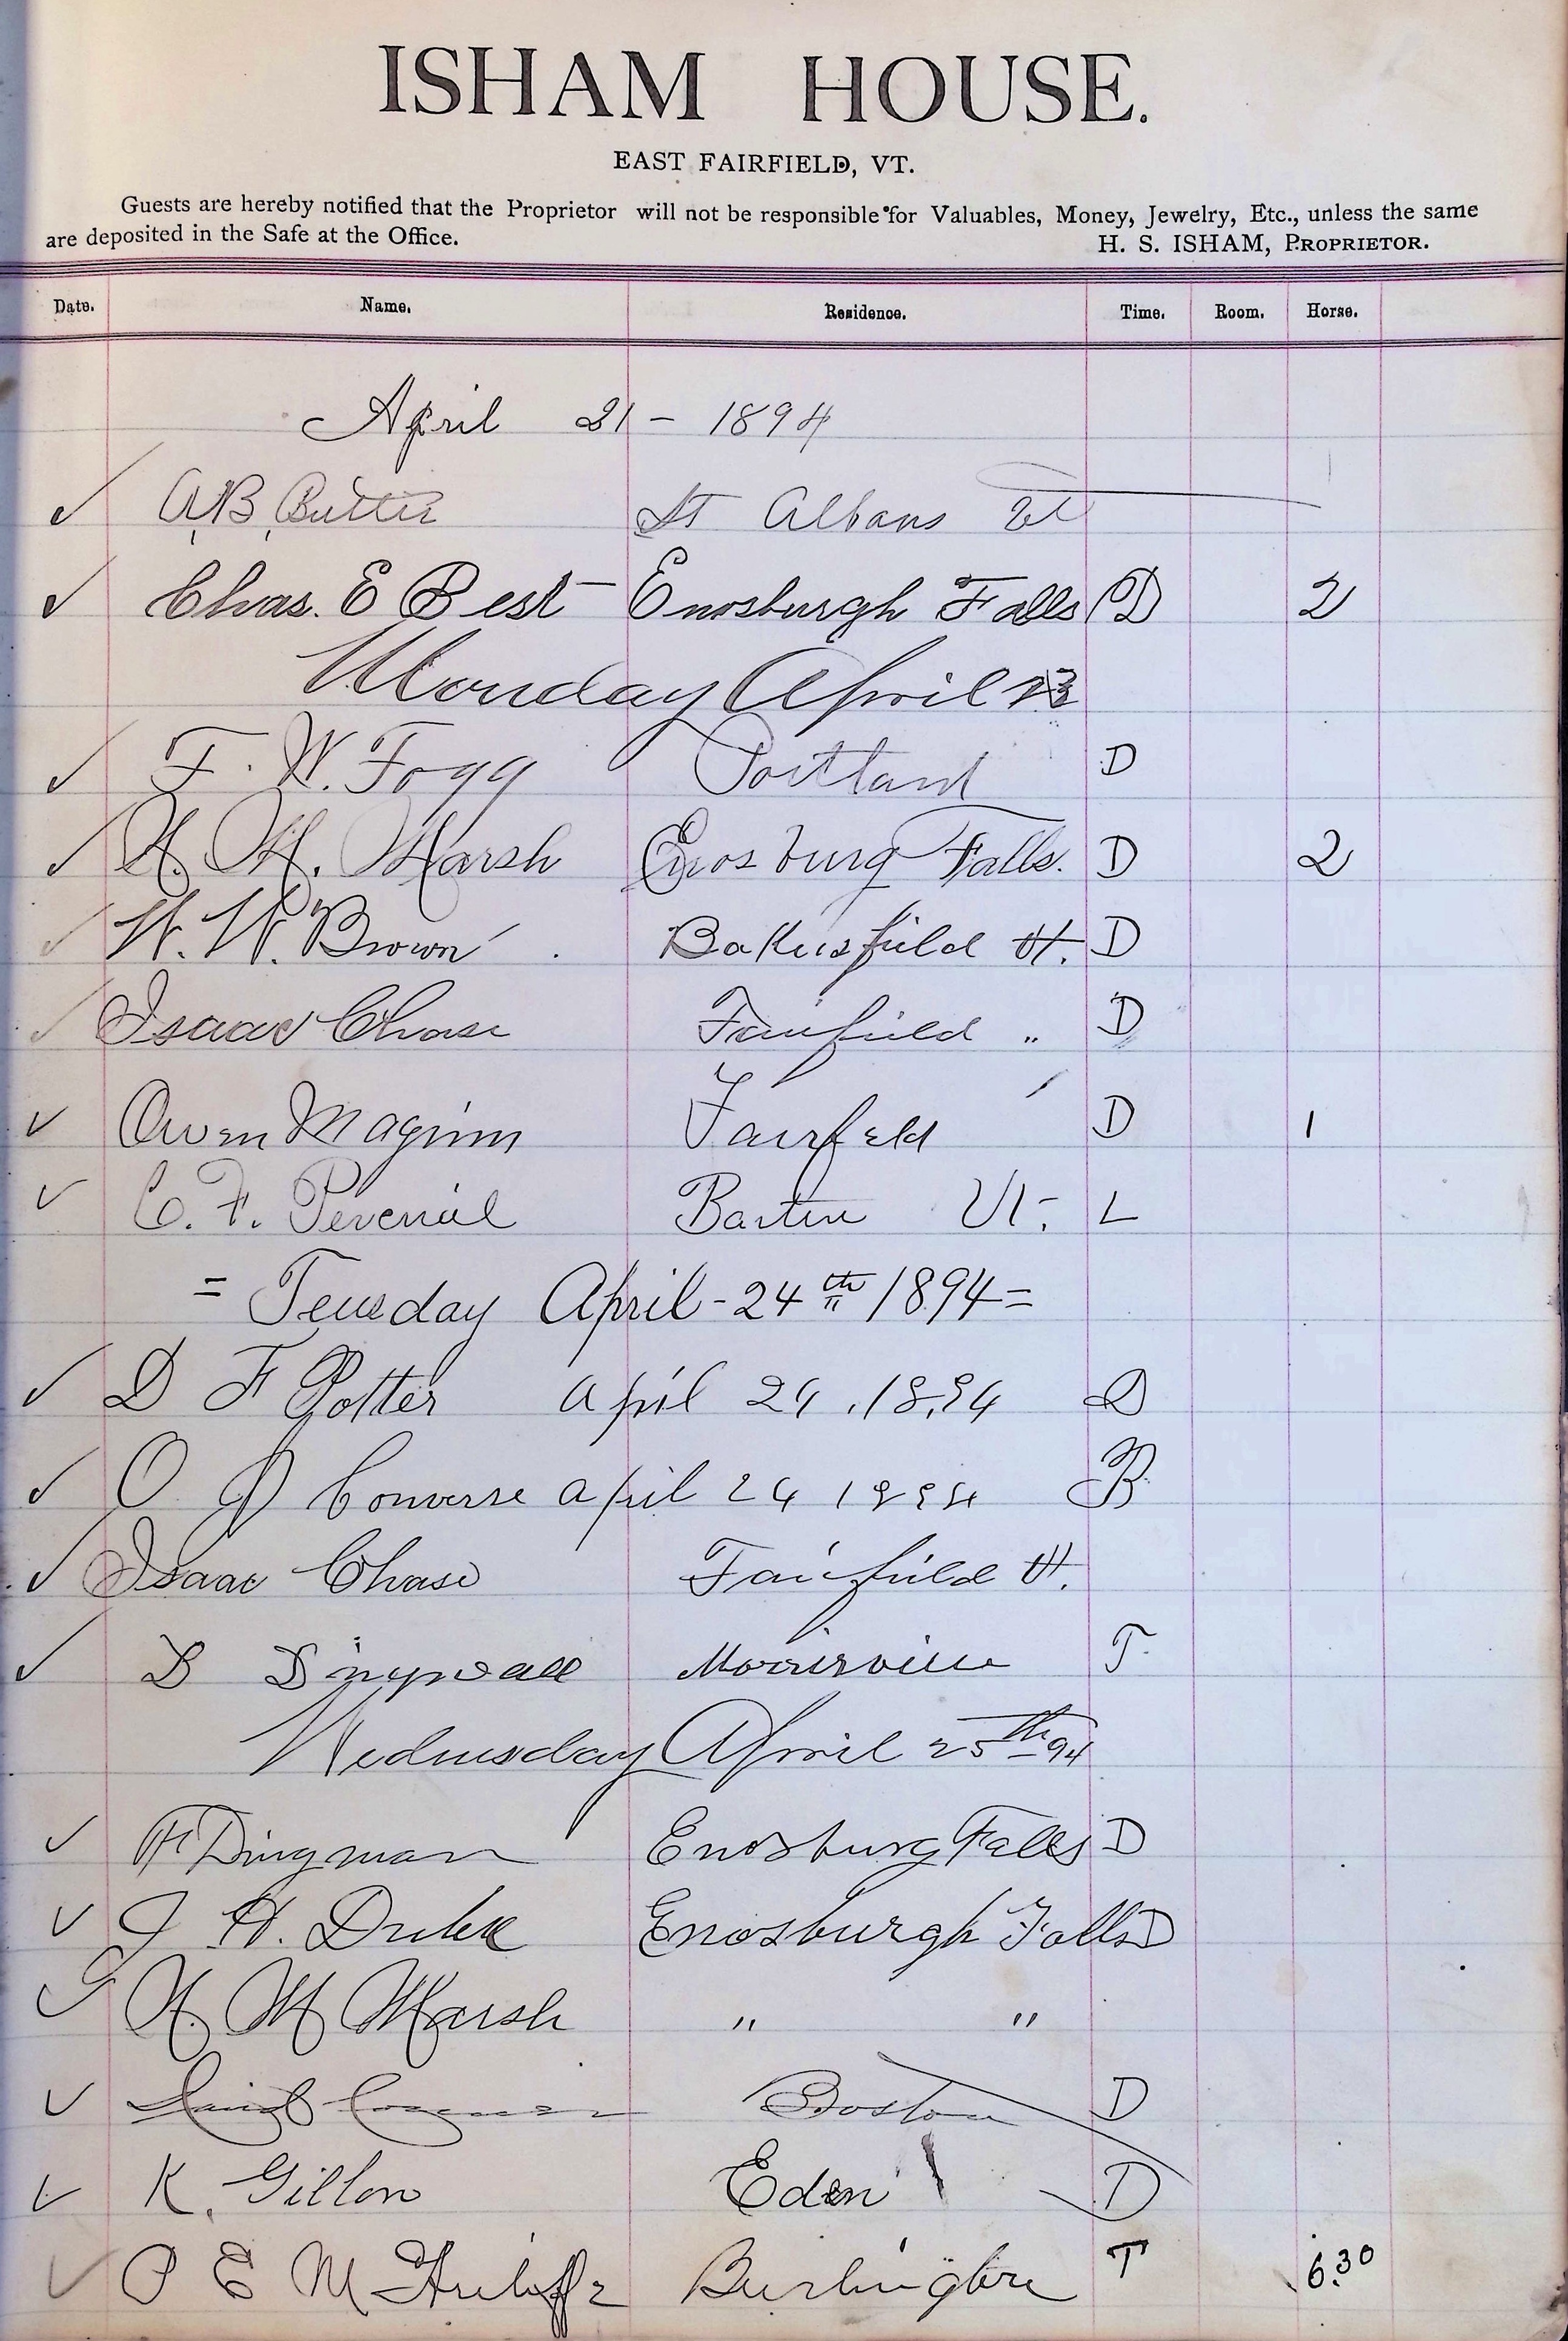 ISHAM HOUSE.
EAST FAIRFIELD, VT.
Guests are hereby notified that the Proprietor will not be responsible for Valuables, Money, Jewelry, Etc., unless the same
are deposited in the Safe at the Office. H. S. ISHAM, PROPRIETOR.
Date. Name. Residence. Time. Room. Horse.
April 21 - 1894
✓ A.B. Butler St Albans Vt
✓ Chas. E Best - Enosburgh Falls D 2
Monday April 23
✓ F. W. Fogg Portland D
✓ H. M. Marsh Enosburg Falls. D 2
✓ W. W. Brown . Bakersfield Vt. D
✓ Isaac Chase Fairfield " D
✓ Owen Maginn Fairfield D 1
✓ C. F. Percival Barton Vt. L
= Teusday April - 24th 1894 =
✓ D F Potter April 24, 1894 D
✓ O D Converse April 24 1894 B
✓ Isaac Chase Fairfield Vt.
✓ D Dingwall Morrisville T
Wednesday April 25th 94
✓ F Dingman Enosburg Falls D
✓ J. H. Enosburgh Falls D
✓ H. M Marsh " "
✓ Boston D
✓ K. Gillon Eden D
✓ P E Burlington T 6.30